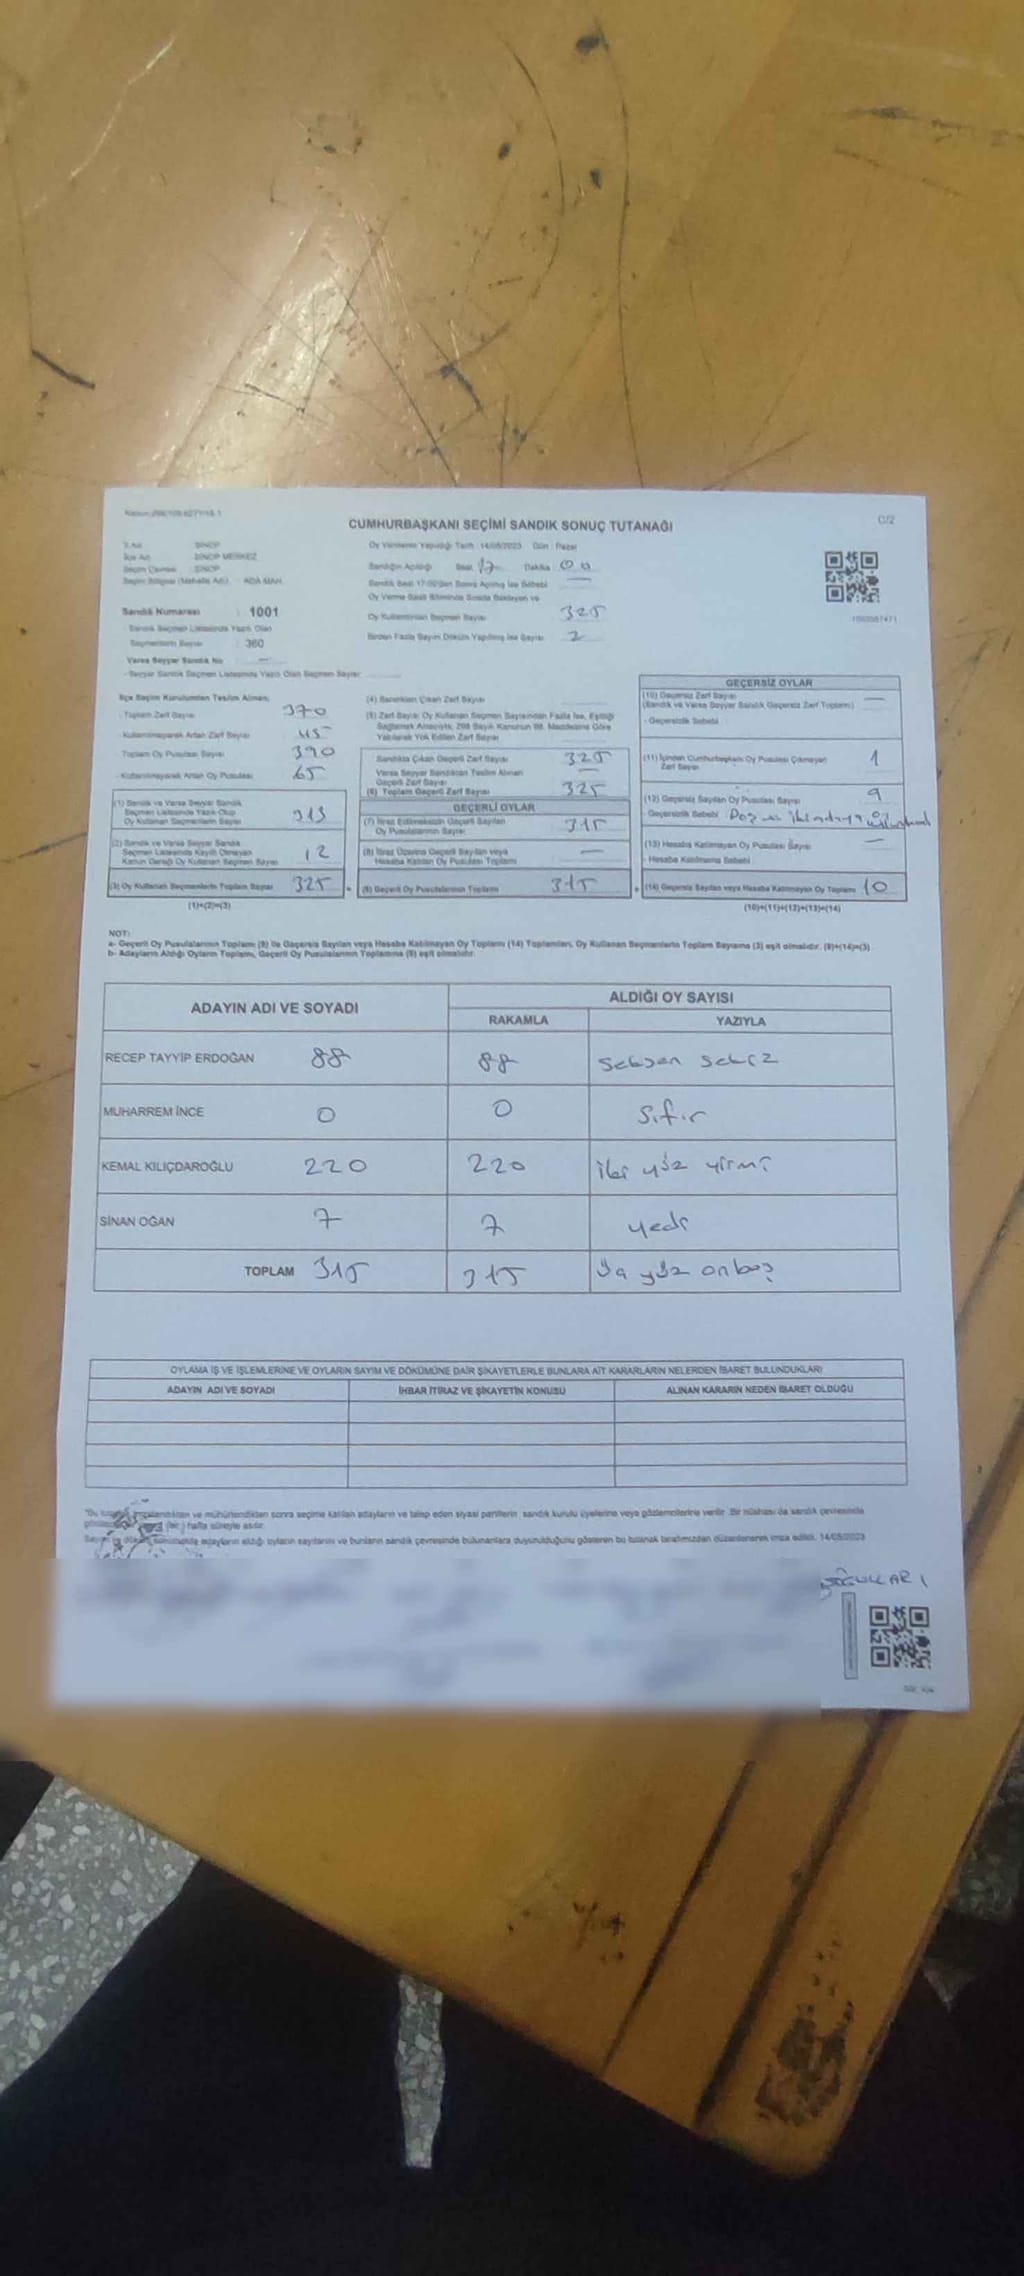 C/2
CUMHURBAŞKANI SEÇİMİ SANDIK SONUÇ TUTANAĞI
İl Adı : SİNOP
İlçe Adı : SİNOP MERKEZ
Seçim Çevresi : SİNOP
Seçim Bölgesi (Mahalle Adı) : ADA MAH.
Sandık Numarası : 1001
Sandık Seçmen Listesinde Yazılı Olan
Seçmenlerin Sayısı : 360
Varsa Seyyar Sandık No —
- Seyyar Sandık Seçmen Listesinde Yazılı Olan Seçmen Sayısı
Oy Vermenin Yapıldığı Tarih : 14/05/2023 Gün : Pazar
Sandığın Açıldığı Saat 17 Dakika 00
Sandık Saat 17:00'den Sonra Açılmış İse Sebebi —
Oy Verme Saati Bitiminde Sırada Bekleyen ve
Oy Kullandırılan Seçmen Sayısı 325
Birden Fazla Sayım Döküm Yapılmış İse Sayısı 2
İlçe Seçim Kurulundan Teslim Alınan;
- Toplam Zarf Sayısı 370
- Kullanılmayarak Artan Zarf Sayısı 45
Toplam Oy Pusulası Sayısı 390
- Kullanılmayarak Artan Oy Pusulası 65
(1) Sandık ve Varsa Seyyar Sandık
Seçmen Listesinde Yazılı Olup
Oy Kullanan Seçmenlerin Sayısı 313
(2) Sandık ve Varsa Seyyar Sandık
Seçmen Listesinde Kayıtlı Olmayan
Kanun Gereği Oy Kullanan Seçmen Sayısı 12
(3) Oy Kullanan Seçmenlerin Toplam Sayısı 325
(1)+(2)=(3)
(4) Sandıktan Çıkan Zarf Sayısı
(5) Zarf Sayısı Oy Kullanan Seçmen Sayısından Fazla İse, Eşitliği
Sağlamak Amacıyla, 298 Sayılı Kanunun 98. Maddesine Göre
Yakılarak Yok Edilen Zarf Sayısı
Sandıkta Çıkan Geçerli Zarf Sayısı 325
Varsa Seyyar Sandıktan Teslim Alınan
Geçerli Zarf Sayısı —
(6) Toplam Geçerli Zarf Sayısı 325
GEÇERLİ OYLAR
(7) İtiraz Edilmeksizin Geçerli Sayılan
Oy Pusulalarının Sayısı 315
(8) İtiraz Üzerine Geçerli Sayılan veya
Hesaba Katılan Oy Pusulası Toplamı —
(9) Geçerli Oy Pusulalarının Toplamı 315
GEÇERSİZ OYLAR
(10) Geçersiz Zarf Sayısı —
(Sandık ve Varsa Seyyar Sandık Geçersiz Zarf Toplamı)
- Geçersizlik Sebebi
(11) İçinden Cumhurbaşkanı Oy Pusulası Çıkmayan
Zarf Sayısı 1
(12) Geçersiz Sayılan Oy Pusulası Sayısı 9
- Geçersizlik Sebebi
(13) Hesaba Katılmayan Oy Pusulası Sayısı —
- Hesaba Katılmama Sebebi
(14) Geçersiz Sayılan veya Hesaba Katılmayan Oy Toplamı 10
(10)+(11)+(12)+(13)=(14)
NOT:
a- Geçerli Oy Pusulalarının Toplamı (9) ile Geçersiz Sayılan veya Hesaba Katılmayan Oy Toplamı (14) Toplamları, Oy Kullanan Seçmenlerin Toplam Sayısına (3) eşit olmalıdır. (9)+(14)=(3)
b- Adayların Aldığı Oyların Toplamı, Geçerli Oy Pusulalarının Toplamına (9) eşit olmalıdır.
ADAYIN ADI VE SOYADI
ALDIĞI OY SAYISI
RAKAMLA YAZIYLA
RECEP TAYYİP ERDOĞAN 88 88 seksen sekiz
MUHARREM İNCE 0 0 Sıfır
KEMAL KILIÇDAROĞLU 220 220 iki yüz yirmi
SİNAN OĞAN 7 7 yedi
TOPLAM 315 315 Üç yüz onbeş
OYLAMA İŞ VE İŞLEMLERİNE VE OYLARIN SAYIM VE DÖKÜMÜNE DAİR ŞİKAYETLERLE BUNLARA AİT KARARLARIN NELERDEN İBARET BULUNDUKLARI
ADAYIN ADI VE SOYADI İHBAR İTİRAZ VE ŞİKAYETİN KONUSU ALINAN KARARIN NEDEN İBARET OLDUĞU
ve mühürlendikten sonra seçime katılan adayların ve talep eden siyasi partilerin sandık kurulu üyelerine veya gözlemcilerine verilir. Bir nüshası da sandık çevresinde
hafta süreyle asılır.
adayların aldığı oyların sayılarını ve bunların sandık çevresinde bulunanlara duyurulduğunu gösteren bu tutanak tarafımızdan düzenlenerek imza edildi. 14/05/2023